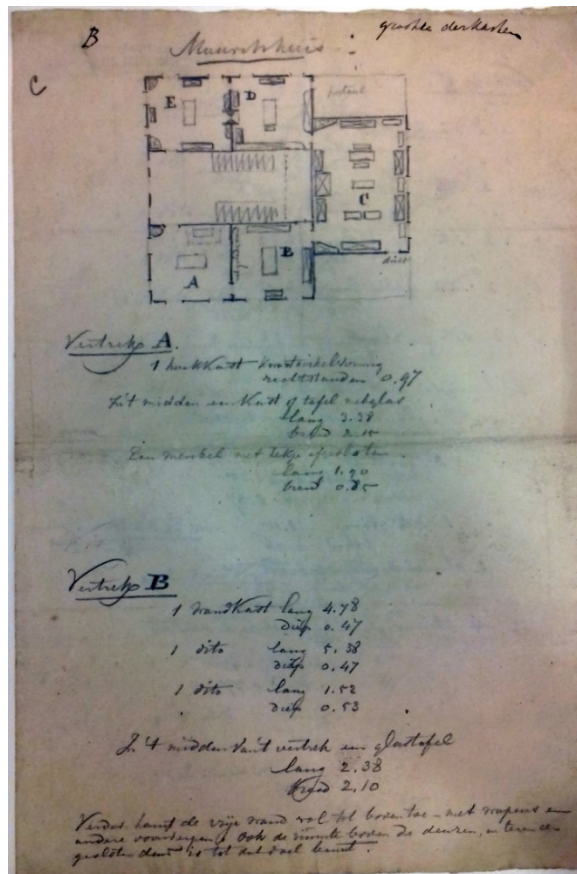 B
grootte der kasten
Mauritshuis
C
E D
portaal
C
A B
Vertrek A.
1 hoekkast
rechtstanden 0.97
In 't midden een kast of tafel met glas
lang 3.38
breed
Een meubel met
lang 1.90
breed 0.85
Vertrek B
1 wandkast lang 4.78
diep 0.47
1 dito lang 5.38
diep 0.47
1 dito lang 1.52
diep 0.53
In 't midden van 't vertrek een glastafel
lang 2.38
breed 2.10
Verder hangt de vrije wand vol tot boven toe met wapens en
andere voorwerpen, Ook de ruimte boven de deuren, en
gesloten deur is tot dat doel benut.